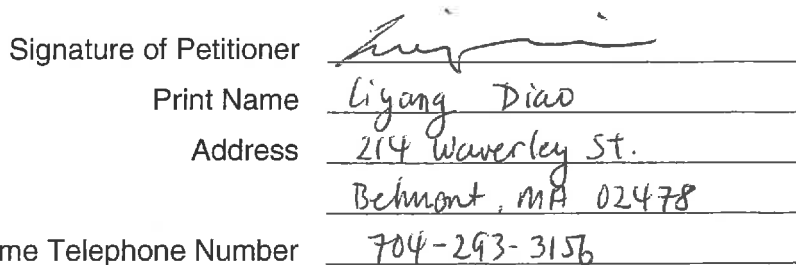 Signature of Petitioner
Print Name Liyang Diao
Address 214 Waverley St.
Belmont, MA 02478
me Telephone Number 704-293-3156